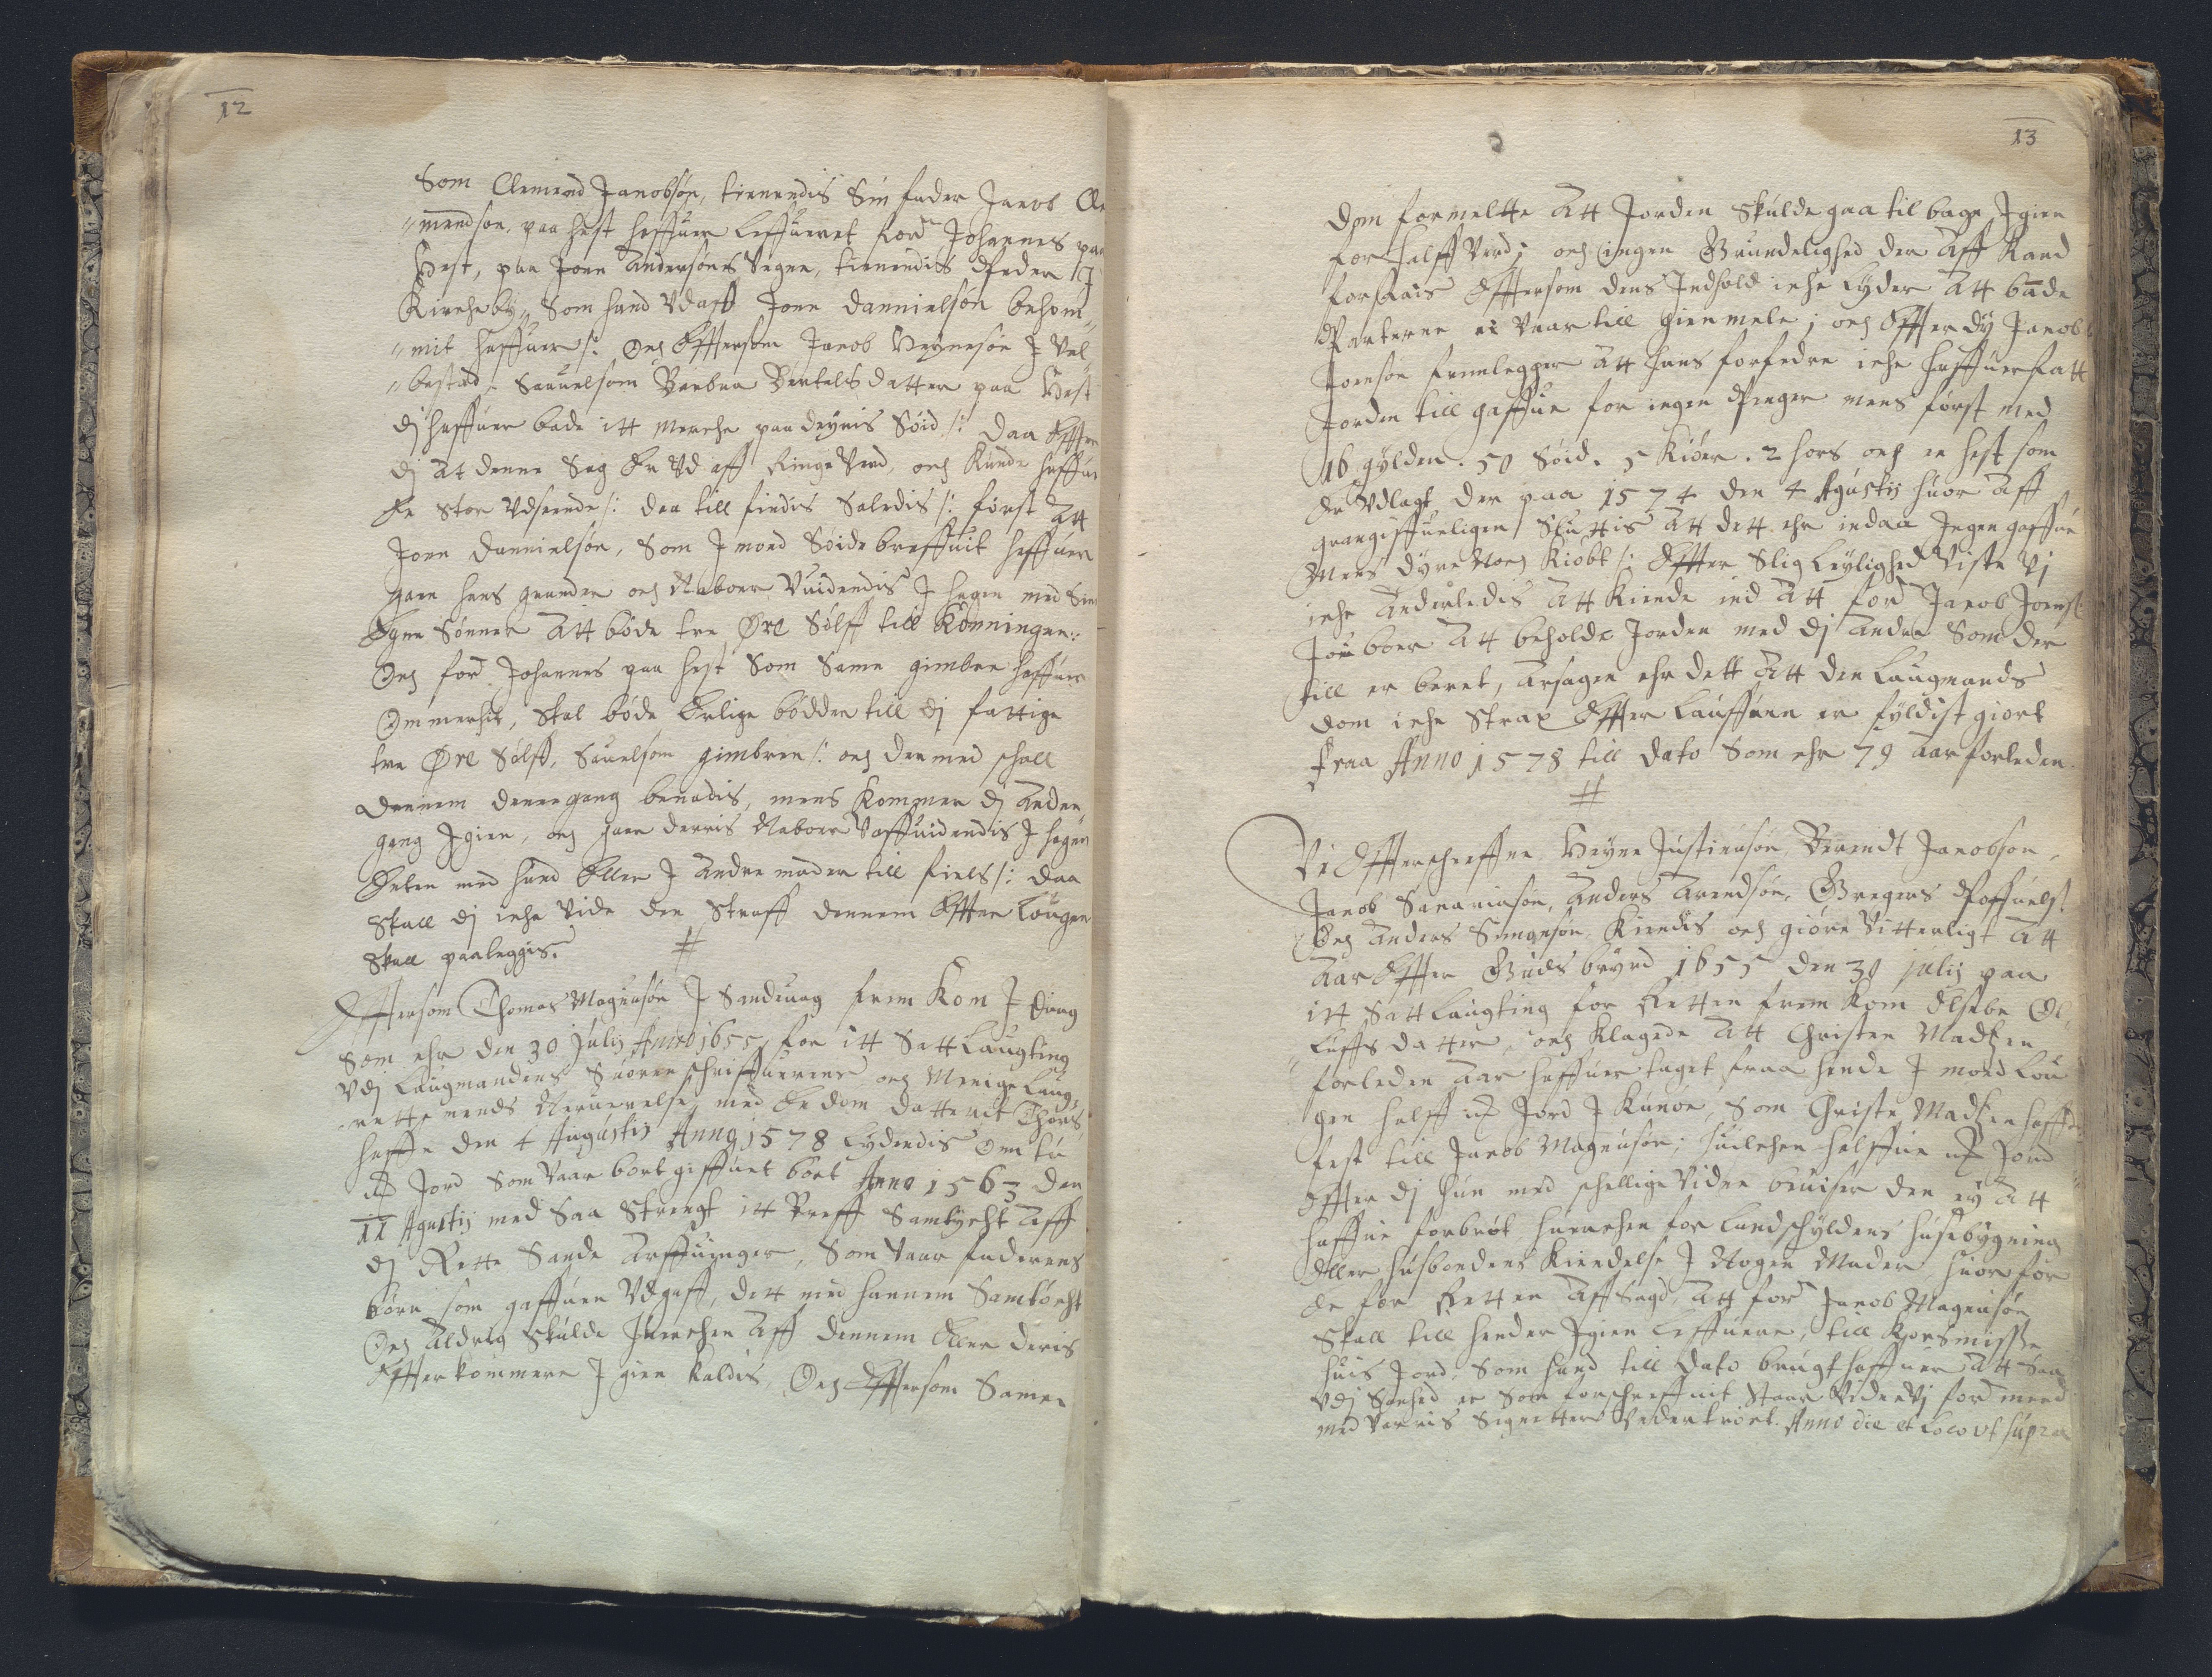 12
Som Clemend Jacobsøn, tienendis Sin fader Jacob Cle
mendsøn, paa hest haffuer leffueret ford Johannes paa
Hest, paa Joen Andersøns Vegne, tienendis Peder J
Kircheby, Som hand Vdaff Joen Dannielsøn bekom„
„mit haffuer /: Och Effttersom Jacob Heynesøn J Vel„
„bestad, Sauuelsom Barbra Bertels datter paa Hest
dj haffuer bade itt merche paa deynis Søid /: Daa Effter
dj at denne Sag Er Vd aff Ringe Verd, och Kunde haffue
En stor Vdseende /: daa till findis Saledis /: først Att
Joen Dannielsøn, Som J mod Søidebreffuit haffuer
gaen hans grander och Naboer Vuidendis J hagen med Sine
Egne Sønner Att bøde tre Øre Sølff till Konningen:
Och ford Johannes paa Hest Som Same gimber haffuer
Ommerchet, skal bøde Erlige bødder till dj fattige
tre Øre Sølff, Sauelsom gimbren /: och dermed schall
dennem denne gang benadis, mens Kommer dj Anden
gang Jgien, och gaar derris Naboer Vaffuidendis J hagen
Enten med hund Eller J Andre mader till fields /: Daa
Skall dj iche Vide den Straff dennem Effter Lougen
Skall paaleggis.
Effttersom Thomas Magnusøn J Sanduaag frem Kom J Daag
Som ehr den 30 Julij Anno 1655, for itt Sett Laugting
Vdj Laugmandens Suoren schriffuerens och Menige Laug„
rettemends Neruerelse, med En dom datterit Thors„
haffn den 4 Augustij Anno 1578 lydendis Om tu
 Jord Som Vaar bort giffuet bort Anno 1563 den
11 Agustij med Saa Strengt itt Breff Samtycht Aff
dj Rette Sande Arffuinger, Som Vaar faderens
børn som gaffuen Vdgaff, dett med hannem Samtøcht
Och Aldrig Skulde huerchen Aff dennem Eller deris
Effterkommere Jgien kaldis, Och Effttersom Samen
13
Dom formeltte Att Jorden Skulde gaa tilbage Jgien
for halff Verd; och ingen Grundelighed der Aff Kand
forfaais Effttersom dens Jndhold iche Lyder Att bade
Parterne ei Vaar till gienmele; och Effter dy Jacob
Joensøn fremlegger Att hans forfedre iche haffuer fatt
Jorden till gaffue for ingen Penger mens først med
16 gylden. 50 Søid. 5 Kiøer. 2 hors och en hest som
Er Vdlagt der paa 1574 den 4 Agustij huor Aff
grangiffueligen Sluttis Att dett ehr indaa Jngen gaffue
Mens dyre Noch Kiøbt /: Effter Slig Leylighed Viste Vj
iche Anderledis Att Kiende ind Att ford Jacob Joensøn
Jou bør Att beholde Jorden med dj Andre Som der
till er beret, Arsagen ehr dett Att den Laugmands
dom iche Strax Effter Lauffuen er fyldist giort
fraa Anno 1578 till Dato Som ehr 79 Aar forleden.
Vi Effterschreffne Heyne Justinusøn, Berendt Jacobsøn,
Jacob Sacariusøn, Anders Arendsøn, Gregers Poffuels.
Och Anders Simonsøn Kiendis och giøre Vitterligt Att
Aar Effter Guds byrd 1655 den 30 julij paa
itt Sett Laugting for Retten frem Kom Elsebe Ol„
luffs datter, och Klagede Att Christen Madtzen
forleden Aar haffuer taget fraa hende J mod Lou
gen halff  Jord J Kunøe, Som Christe Madtzen haffde
fest till Jacob Magnusøn; huilchen halffue  Jord
Effter dj hun med schellige Vidne beuiser den ey Att
haffue forbrøt huerchen for Landschyldens husebygning
Eller husbondens Kiendelse J Nogen Mader, huor for
de for Retten Aff Sagd, Att ford Jacob Magnusøn
Skall till hender Jgien leffuere, till Korsmisse
huis Jord, Som hand till Dato brugt haffuer Att Saa
Vdj Sanhed er Som forschreffuit Staar Vidne Vj ford mend
med Vorris Signetter Vndertrøct. Anno die et Loco vt supra